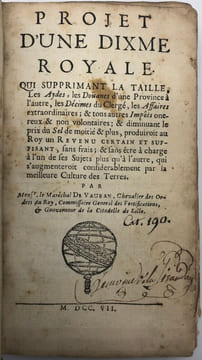 PROJET
D'UNE DIXME
ROYALE.
QUI SUPPRIMANT LA TAILLE,
Les Aydes, les Doüanes d'une Province à
l'autre, les Décimes du Clergé, les Affaires
extraordinaires; & tous autres Impôts one-
reux & non volontaires; & diminuant le
prix du Sel de moitié & plus, produiroit au
Roy un REVENU CERTAIN ET SUF-
FISANT, sans frais; & sans être à charge
à l'un de ses Sujets plus qu'à l'autre, qui
s'augmenteroit considerablement par la
meilleure Culture des Terres.
PAR
Monsr. le Maréchal DE VAUBAN, Chevalier des Or-
dres du Roy, Commissaire General des Fortifications,
& Gouverneur de la Citadelle de Lille.
190.
M. DCC. VII.